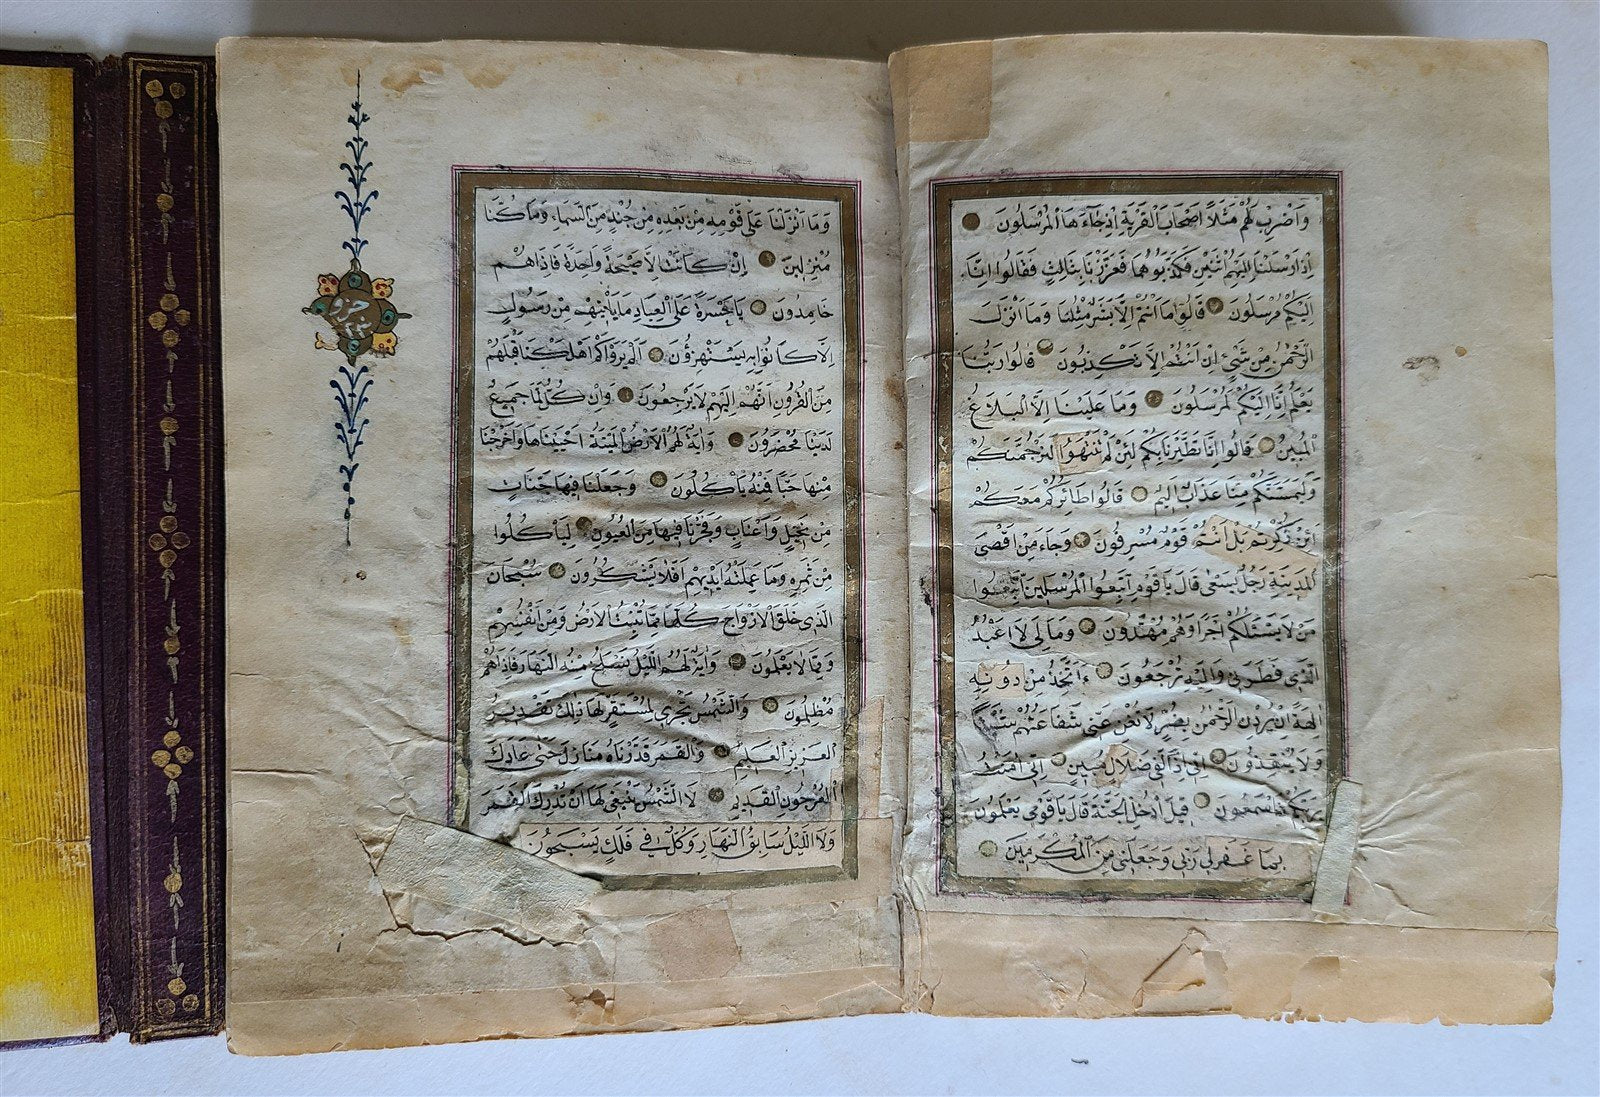 وَاضْرِبْ لَهُمْ مَثَلًا اَصْحَابَ الْقَرْيَةِ اِذْ جَاءَهَا الْمُرْسَلُونَ
اِذْ اَرْسَلْنَا اِلَيْهِمُ اثْنَيْنِ فَكَذَّبُوهُمَا فَعَزَّزْنَا بِثَالِثٍ فَقَالُوا اِنَّا
اِلَيْكُمْ مُرْسَلُونَ قَالُوا مَا اَنْتُمْ اِلَّا بَشَرٌ مِثْلُنَا وَمَا اَنْزَلَ
الرَّحْمٰنُ مِنْ شَيْءٍ اِنْ اَنْتُمْ اِلَّا تَكْذِبُونَ قَالُوا رَبُّنَا
يَعْلَمُ اِنَّا اِلَيْكُمْ لَمُرْسَلُونَ وَمَا عَلَيْنَا اِلَّا الْبَلَاغُ
الْمُبِينُ قَالُوا اِنَّا تَطَيَّرْنَا بِكُمْ لَئِنْ لَمْ تَنْتَهُوا لَنَرْجُمَنَّكُمْ
وَلَيَمَسَّنَّكُمْ مِنَّا عَذَابٌ اَلِيمٌ قَالُوا طَائِرُكُمْ مَعَكُمْ
اَئِنْ ذُكِّرْتُمْ بَلْ اَنْتُمْ قَوْمٌ مُسْرِفُونَ وَجَاءَ مِنْ اَقْصَى
الْمَدِينَةِ رَجُلٌ يَسْعٰى قَالَ يَا قَوْمِ اتَّبِعُوا الْمُرْسَلِينَ اتَّبِعُوا
مَنْ لَا يَسْئَلُكُمْ اَجْرًا وَهُمْ مُهْتَدُونَ وَمَا لِيَ لَا اَعْبُدُ
الَّذِي فَطَرَنِي وَاِلَيْهِ تُرْجَعُونَ ءَاَتَّخِذُ مِنْ دُونِهِ
اٰلِهَةً اِنْ يُرِدْنِ الرَّحْمٰنُ بِضُرٍّ لَا تُغْنِ عَنِّي شَفَاعَتُهُمْ شَيْئًا
وَلَا يُنْقِذُونِ اِنِّي اِذًا لَفِي ضَلَالٍ مُبِينٍ اِنِّي اٰمَنْتُ
بِرَبِّكُمْ فَاسْمَعُونِ قِيلَ ادْخُلِ الْجَنَّةَ قَالَ يَا لَيْتَ قَوْمِي يَعْلَمُونَ
بِمَا غَفَرَ لِي رَبِّي وَجَعَلَنِي مِنَ الْمُكْرَمِينَ
وَمَا اَنْزَلْنَا عَلٰى قَوْمِهِ مِنْ بَعْدِهِ مِنْ جُنْدٍ مِنَ السَّمَاءِ وَمَا كُنَّا
مُنْزِلِينَ اِنْ كَانَتْ اِلَّا صَيْحَةً وَاحِدَةً فَاِذَا هُمْ
خَامِدُونَ يَا حَسْرَةً عَلَى الْعِبَادِ مَا يَأْتِيهِمْ مِنْ رَسُولٍ
اِلَّا كَانُوا بِهِ يَسْتَهْزِؤُنَ اَلَمْ يَرَوْا كَمْ اَهْلَكْنَا قَبْلَهُمْ
مِنَ الْقُرُونِ اَنَّهُمْ اِلَيْهِمْ لَا يَرْجِعُونَ وَاِنْ كُلٌّ لَمَّا جَمِيعٌ
لَدَيْنَا مُحْضَرُونَ وَاٰيَةٌ لَهُمُ الْاَرْضُ الْمَيْتَةُ اَحْيَيْنَاهَا وَاَخْرَجْنَا
مِنْهَا حَبًّا فَمِنْهُ يَأْكُلُونَ وَجَعَلْنَا فِيهَا جَنَّاتٍ
مِنْ نَخِيلٍ وَاَعْنَابٍ وَفَجَّرْنَا فِيهَا مِنَ الْعُيُونِ لِيَأْكُلُوا
مِنْ ثَمَرِهِ وَمَا عَمِلَتْهُ اَيْدِيهِمْ اَفَلَا يَشْكُرُونَ سُبْحَانَ
الَّذِي خَلَقَ الْاَزْوَاجَ كُلَّهَا مِمَّا تُنْبِتُ الْاَرْضُ وَمِنْ اَنْفُسِهِمْ
وَمِمَّا لَا يَعْلَمُونَ وَاٰيَةٌ لَهُمُ اللَّيْلُ نَسْلَخُ مِنْهُ النَّهَارَ فَاِذَا هُمْ
مُظْلِمُونَ وَالشَّمْسُ تَجْرِي لِمُسْتَقَرٍّ لَهَا ذٰلِكَ تَقْدِيرُ
الْعَزِيزِ الْعَلِيمِ وَالْقَمَرَ قَدَّرْنَاهُ مَنَازِلَ حَتّٰى عَادَ كَا
الْعُرْجُونِ الْقَدِيمِ لَا الشَّمْسُ يَنْبَغِي لَهَا اَنْ تُدْرِكَ الْقَمَرَ
وَلَا اللَّيْلُ سَابِقُ النَّهَارِ وَكُلٌّ فِي فَلَكٍ يَسْبَحُونَ
جزو
٢٣